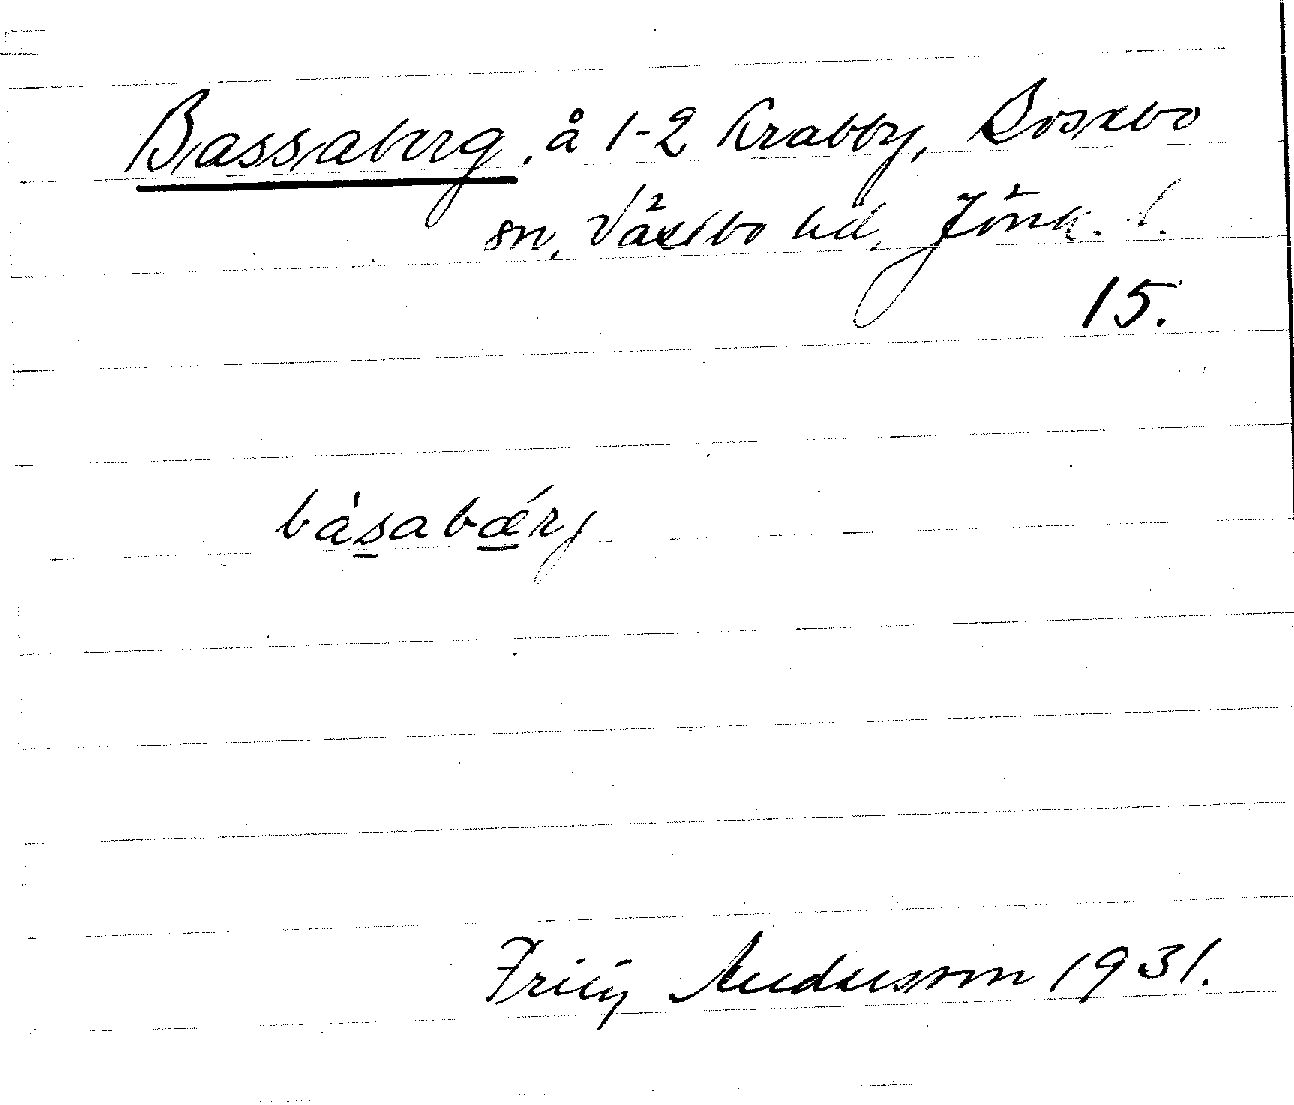 Bassaberg, å 1-2 Krabby, Bosebo
sn, Västbo hd, Jönk. l.
15.
bàsabǽrj
Frity Andersson 1931.